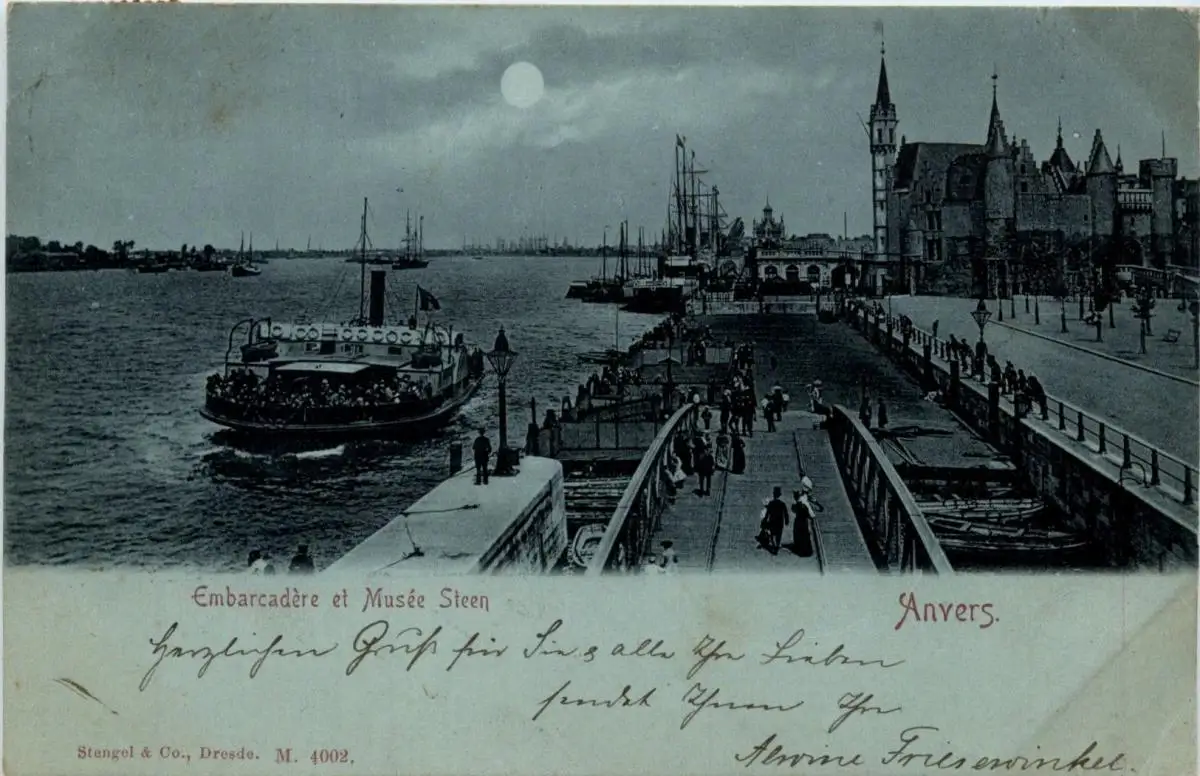 Embarcadère et Musée Steen
Anvers.
Herzlichen Gruß für Sie & alle Ihre Lieben
sendet Ihnen Ihre
Alwine Friesewinkel.
Stengel & Co., Dresde. M. 4002.